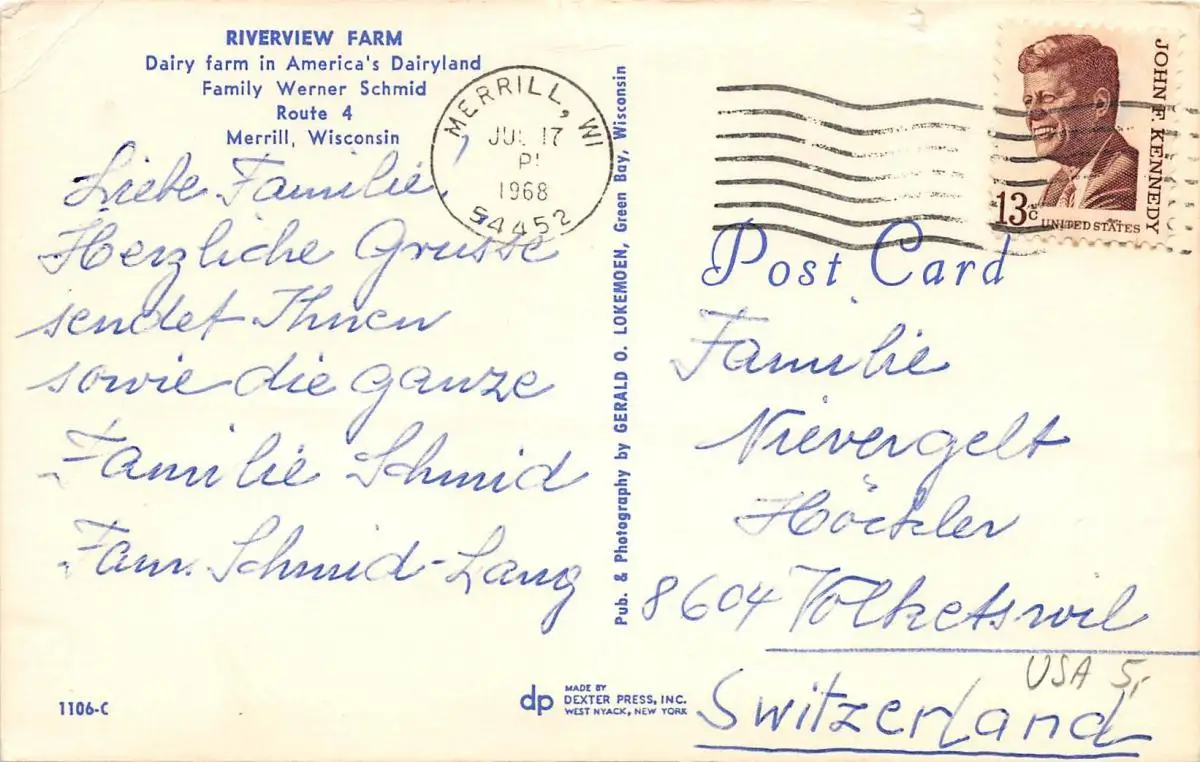 RIVERVIEW FARM
Dairy farm in America's Dairyland
Family Werner Schmid
Route 4
Merrill, Wisconsin
Liebe Familie,
Herzliche Grüsse
sendet Ihnen
sowie die ganze
Familie Schmid
Fam. Schmid-Lang
1106-C
MERRILL, WI
JUL 17
1968
54452
Pub. & Photography by GERALD O. LOKEMOEN, Green Bay, Wisconsin
dp
MADE BY
DEXTER PRESS, INC.
WEST NYACK, NEW YORK
JOHN F. KENNEDY
13c
UNITED STATES
Post Card
Familie
Nievergelt
Höckler
8604 Volketswil
USA 5,-
Switzerland